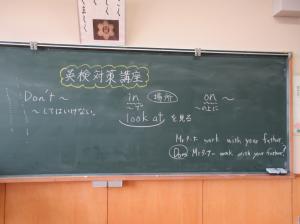 英検対策講座
Don't ~
~してはいけない。
in 場所
~で
on ~
~の上に
look at を見る
work with your father.
Does work with your father?